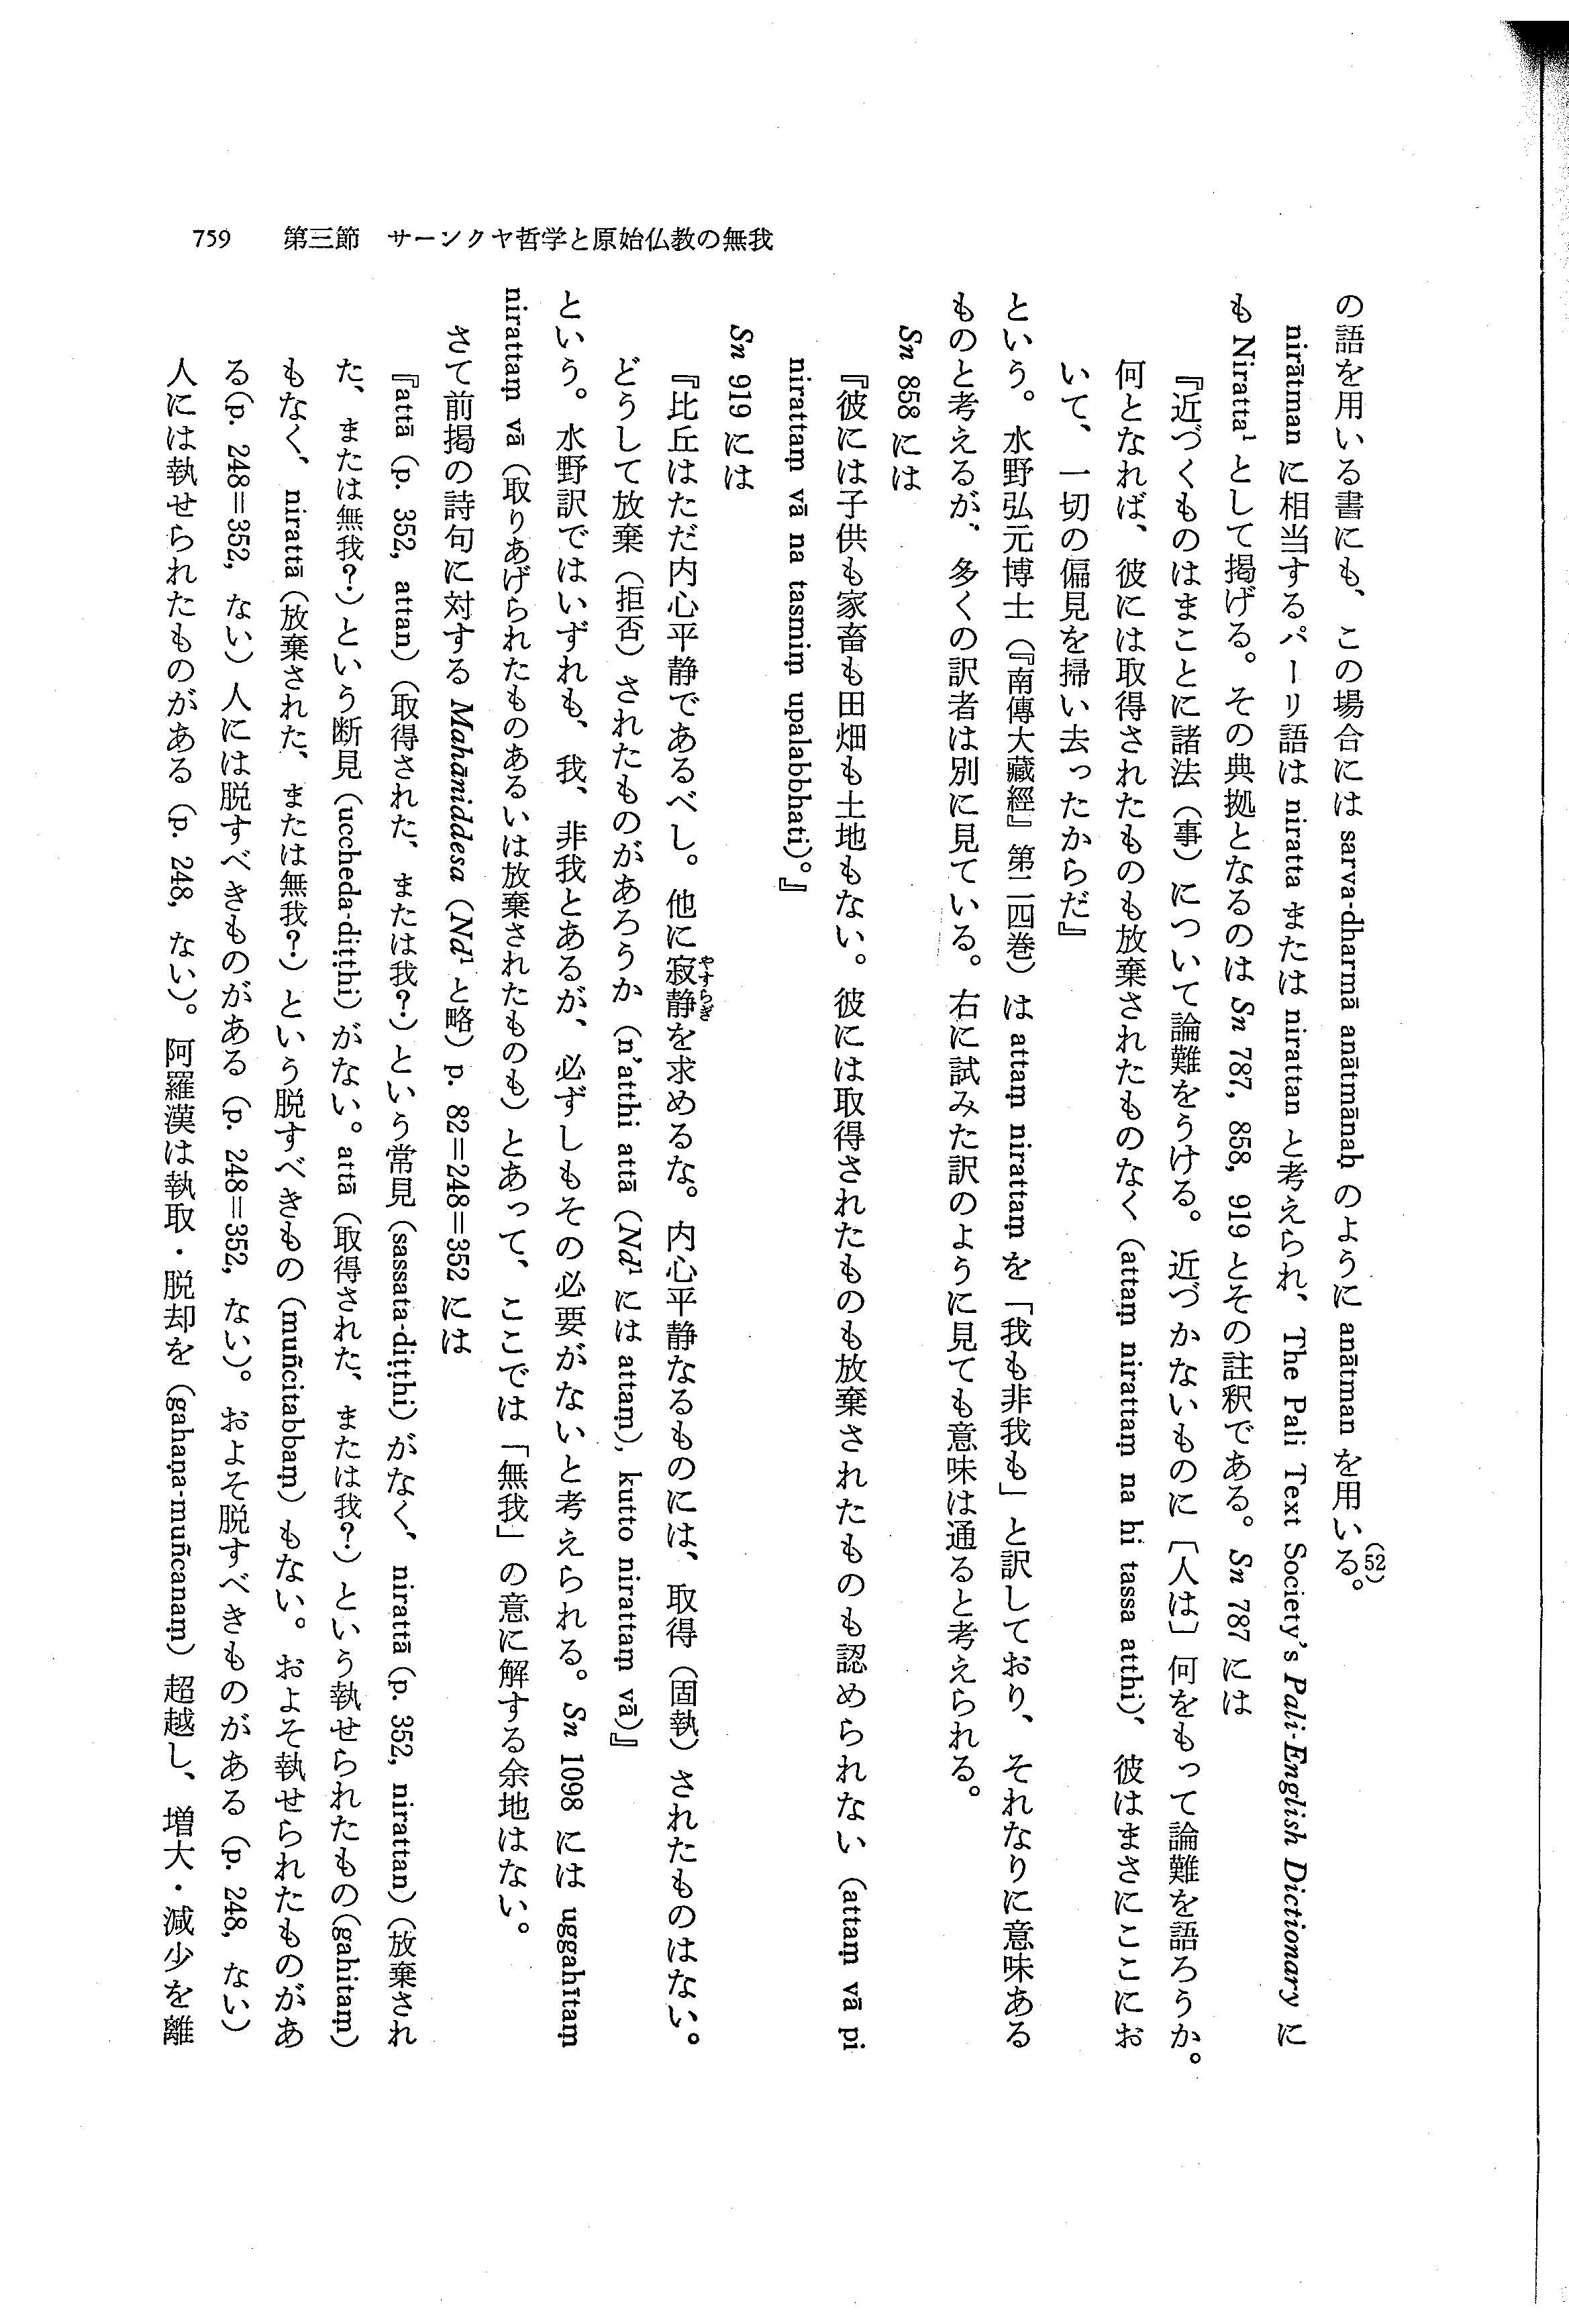 759　第三節　サーンクヤ哲学と原始仏教の無我
の語を用いる書にも、この場合には sarva-dharmā anātmānaḥ のように anātman を用いる。(52)
nirātman に相当するパーリ語は niratta または nirattan と考えられ、The Pali Text Society's Pali-English Dictionary に
も Niratta¹ として掲げる。その典拠となるのは Sn 787, 858, 919 とその註釈である。Sn 787 には
『近づくものはまことに諸法（事）について論難をうける。近づかないものに〔人は〕何をもって論難を語ろうか。
何となれば、彼には取得されたものも放棄されたものなく（attaṃ nirattaṃ na hi tassa atthi）、彼はまさにここにお
いて、一切の偏見を掃い去ったからだ』
という。水野弘元博士（『南傳大藏經』第二四巻）は attaṃ nirattaṃ を「我も非我も」と訳しており、それなりに意味ある
ものと考えるが、多くの訳者は別に見ている。右に試みた訳のように見ても意味は通ると考えられる。
Sn 858 には
『彼には子供も家畜も田畑も土地もない。彼には取得されたものも放棄されたものも認められない（attaṃ vā pi
nirattaṃ vā na tasmiṃ upalabbhati）。』
Sn 919 には
『比丘はただ内心平静であるべし。他に寂静（やすらぎ）を求めるな。内心平静なるものには、取得（固執）されたものはない。
どうして放棄（拒否）されたものがあろうか（n'atthi attā (Nd¹ には attaṃ), kutto nirattaṃ vā）』
という。水野訳ではいずれも、我、非我とあるが、必ずしもその必要がないと考えられる。Sn 1098 には uggahītaṃ
nirattaṃ vā（取りあげられたものあるいは放棄されたものも）とあって、ここでは「無我」の意に解する余地はない。
さて前掲の詩句に対する Mahāniddesa (Nd¹ と略) p. 82=248=352 には
『attā (p. 352, attan)（取得された、または我？）という常見 (sassata-diṭṭhi) がなく、nirattā (p. 352, nirattan)（放棄され
た、または無我？）という断見 (uccheda-diṭṭhi) がない。attā（取得された、または我？）という執せられたもの (gahitaṃ)
もなく、nirattā（放棄された、または無我？）という脱すべきもの (muñcitabbaṃ) もない。およそ執せられたものがあ
る (p. 248=352, ない) 人には脱すべきものがある (p. 248=352, ない)。およそ脱すべきものがある (p. 248, ない)
人には執せられたものがある (p. 248, ない)。阿羅漢は執取・脱却を (gahaṇa-muñcanaṃ) 超越し、増大・減少を離